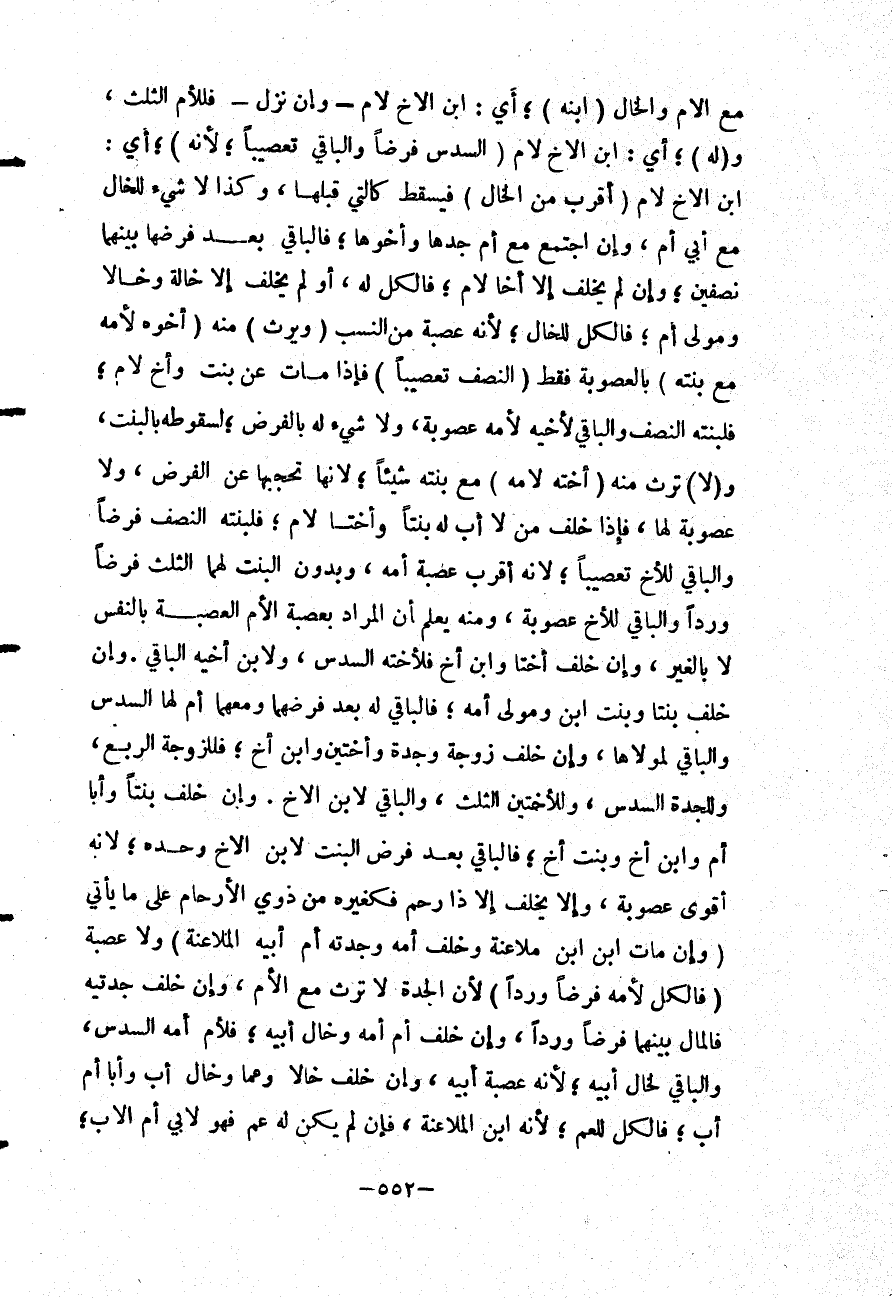 مع الام والخال ( ابنه ) ؛ أَي : ابن الاخ لام – وإن نزل – فللأم الثلث ،
و(له ) ؛ أي : ابن الاخ لام ( السدس فرضاً والباقي تعصيباً ؛ لأنه ) ؛ أي :
ابن الاخ لام ( أقرب من الخال ) فيسقط كالتي قبلهـا ، وكذا لا شيء للخال
مع أبي أم ، وإن اجتمع مع أم جدها وأخوها ؛ فالباقي بعـــد فرضها بينهما
نصفين ؛ وإن لم يخلف إلا أخا لام ؛ فالكل له ، أو لم يخلف إلا خالة وخـالا
ومولى أم ؛ فالكل للخال ؛ لأنه عصبة من النسب ( ويرث ) منه ( أخوه لأمه
مع بنته ) بالعصوبة فقط ( النصف تعصيباً ) فإذا مـات عن بنت وأخ لام ؛
فلبنته النصف والباقي لأخيه لأمه عصوبة، ولا شيء له بالفرض ؛ لسقوطه بالبنت،
و(لا) ترث منه ( أخته لامه ) مع بنته شيئاً ؛ لانها تحجبها عن الفرض ، ولا
عصوبة لها ، فإذا خلف من لا أب له بنتاً وأختـا لام ؛ فلبنته النصف فرضاً
والباقي للأخ تعصيباً ؛ لانه أقرب عصبة أمه ، وبدون البنت لهما الثلث فرضاً
ورداً والباقي للأخ عصوبة ، ومنه يعلم أن المراد بعصبة الأم العصبـــة بالنفس
لا بالغير ، وإن خلف أختا وابن أخ فلأخته السدس ، ولابن أخيه الباقي . وإن
خلف بنتا وبنت ابن ومولى أمه ؛ فالباقي له بعد فرضهما ومعهما أم لها السدس
والباقي لمولاها ، وإن خلف زوجة وجدة وأختين وابن أخ ؛ فللزوجة الربع،
وللجدة السدس ، وللأختين الثلث ، والباقي لابن الاخ . وإن خلف بنتاً وأبا
أم وابن أخ وبنت أخ ؛ فالباقي بعـد فرض البنت لابن الاخ وحـده ؛ لانه
أقوى عصوبة ، وإلا يخلف إلا ذا رحم فكغيره من ذوي الأرحام على ما يأتي
( وإن مات ابن ابن ملاعنة وخلف أمه وجدته أم أبيه الملاعنة ) ولا عصبة
( فالكل لأمه فرضاً ورداً ) لأن الجدة لا ترث مع الأم ، وإن خلف جدتيه
فالمال بينهما فرضاً ورداً ، وإن خلف أم أمه وخال أبيه ؛ فلأم أمه السدس،
والباقي لخال أبيه ؛ لأنه عصبة أبيه ، وإن خلف خالا وعما وخال أب وأبا أم
أب ؛ فالكل للعم ؛ لأنه ابن الملاعنة ، فإن لم يكن له عم فهو لابي أم الاب؛
–٥٥٢–